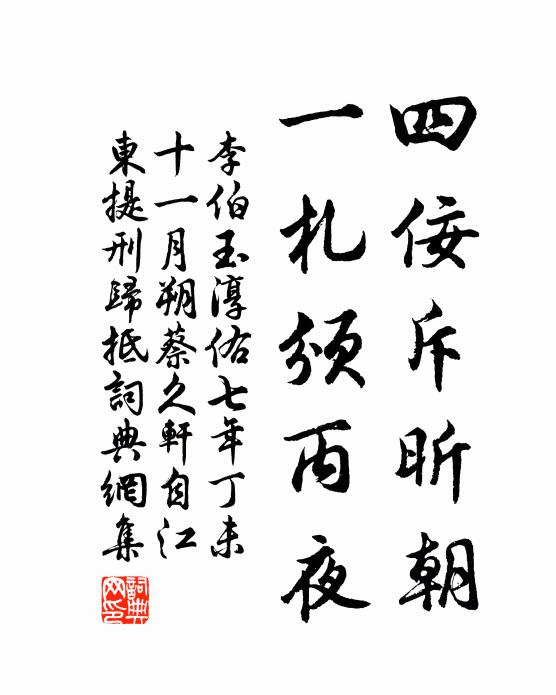 四佞斥昕朝
一札頒丙夜
李伯玉淳佑七年丁未
十一月朔蔡久軒自江
東提刑歸抵詞典網集